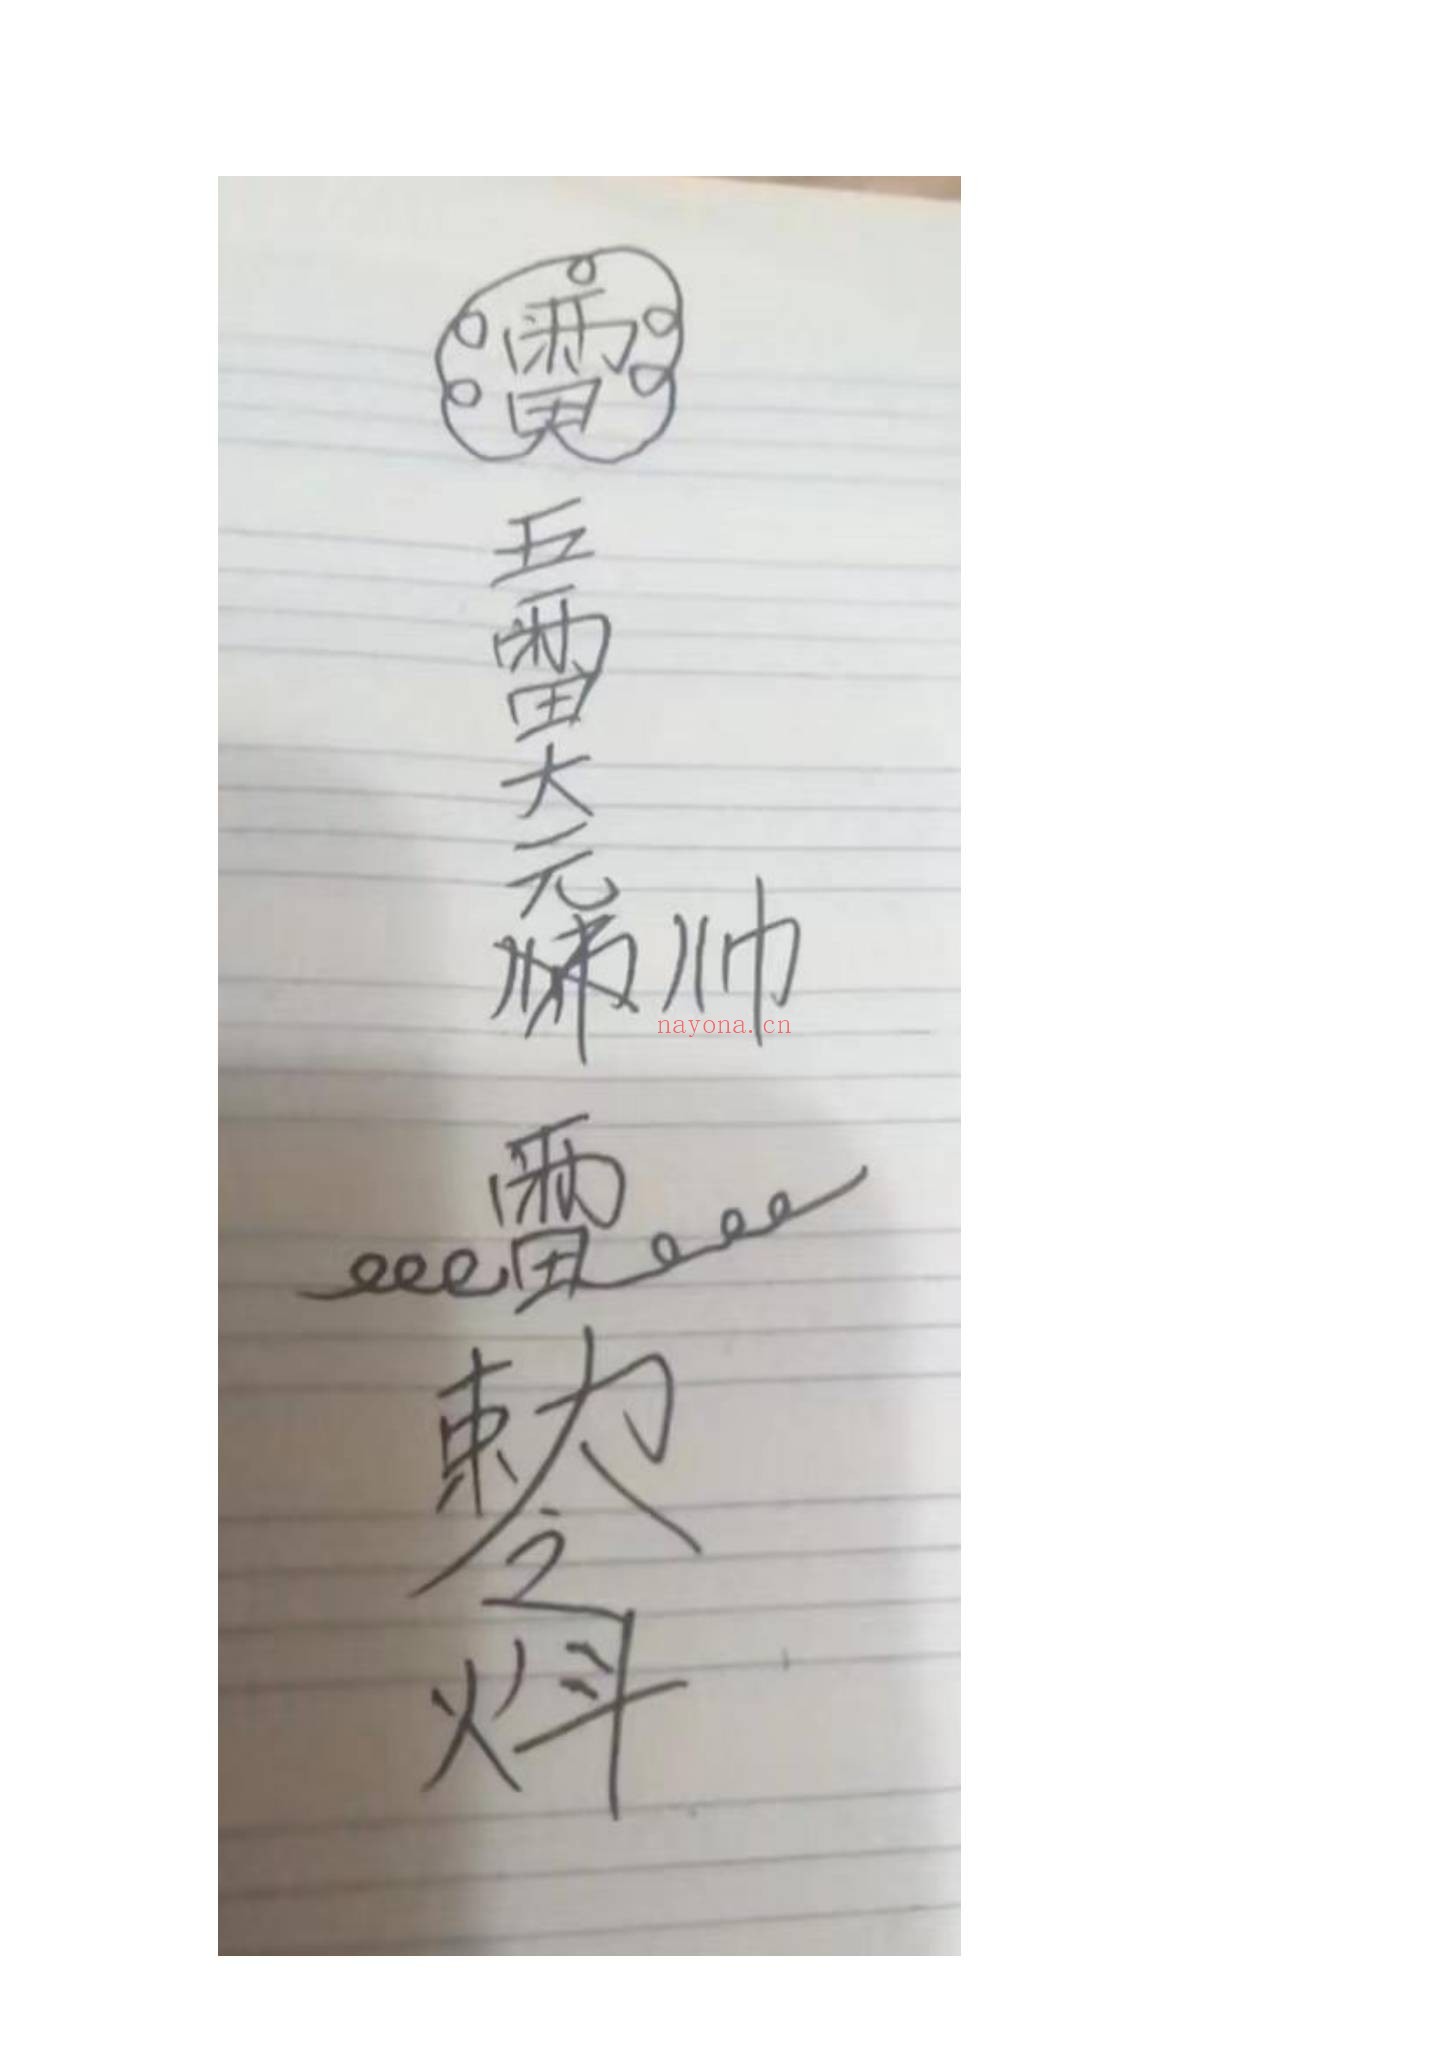 雷
五
雷
大
元
帅
nayona.cn
雷
敕
令
炓